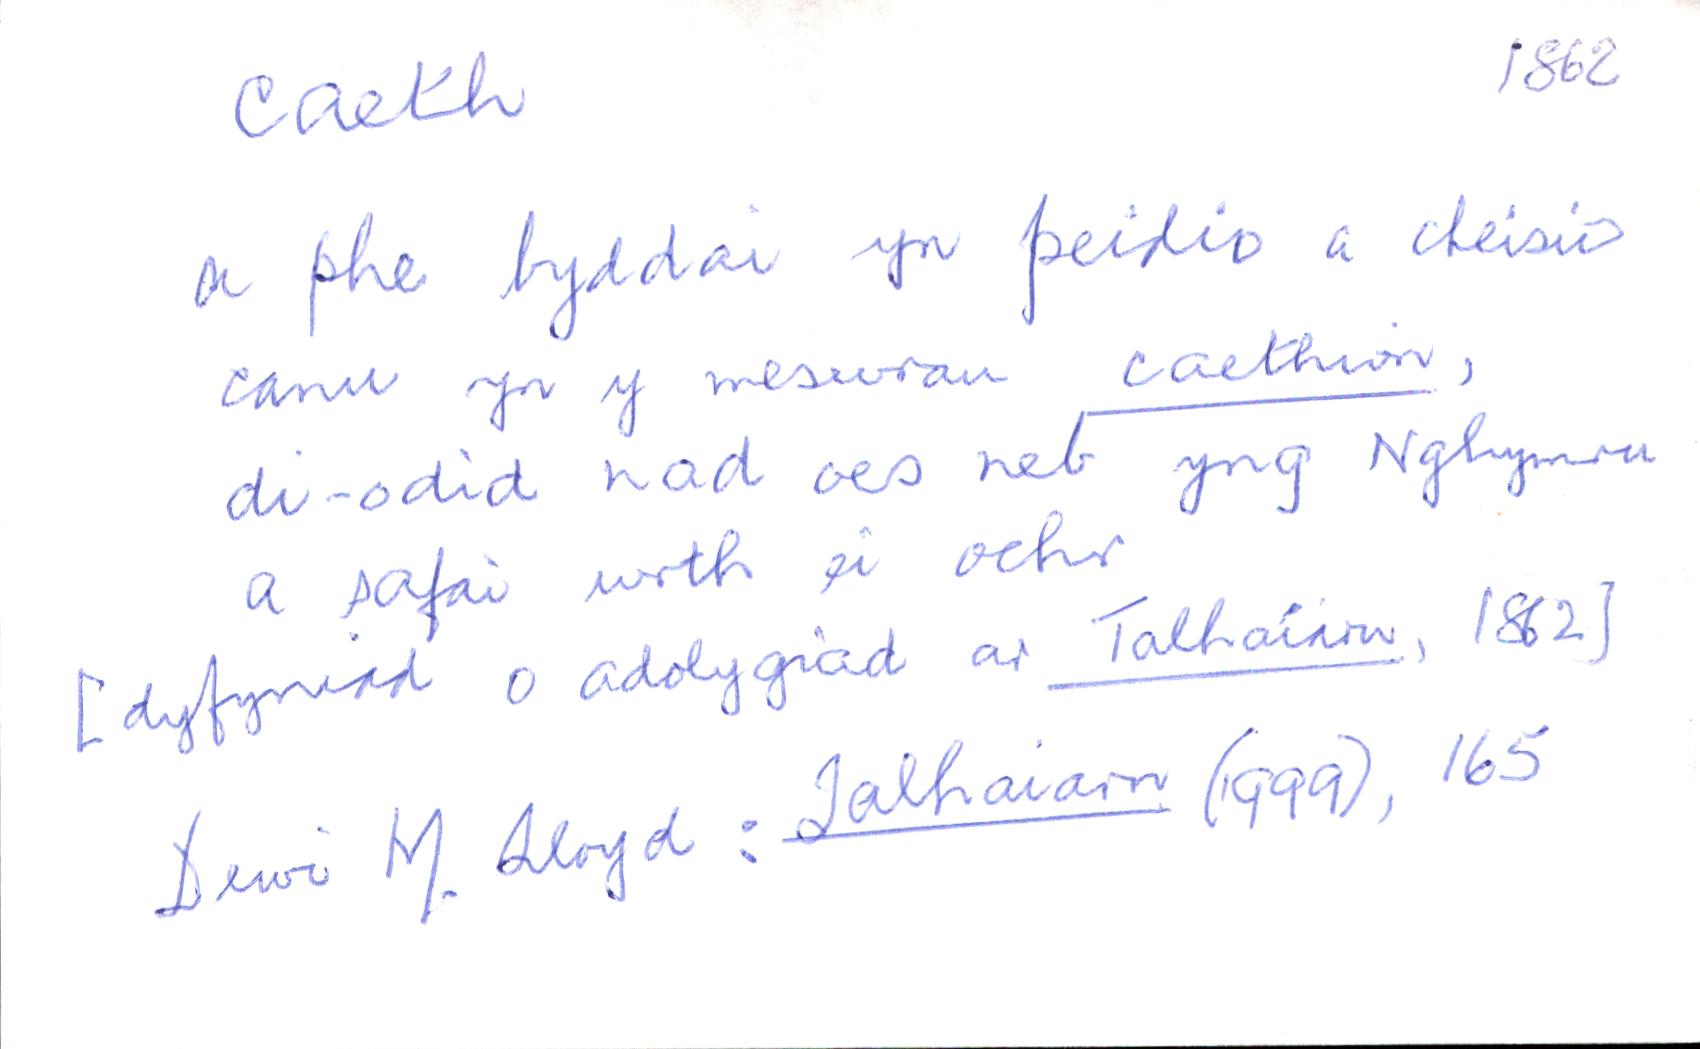 caeth 1862
a phe byddai yn peidio a cheisio
canu yn y mesurau caethion,
di-odid nad oes neb yng Nghymru
a safai wrth ei ochr
[dyfyniad o adolygiad ar Talhaiarn, 1862]
Dewi M. Lloyd: Talhaiarn (1999), 165